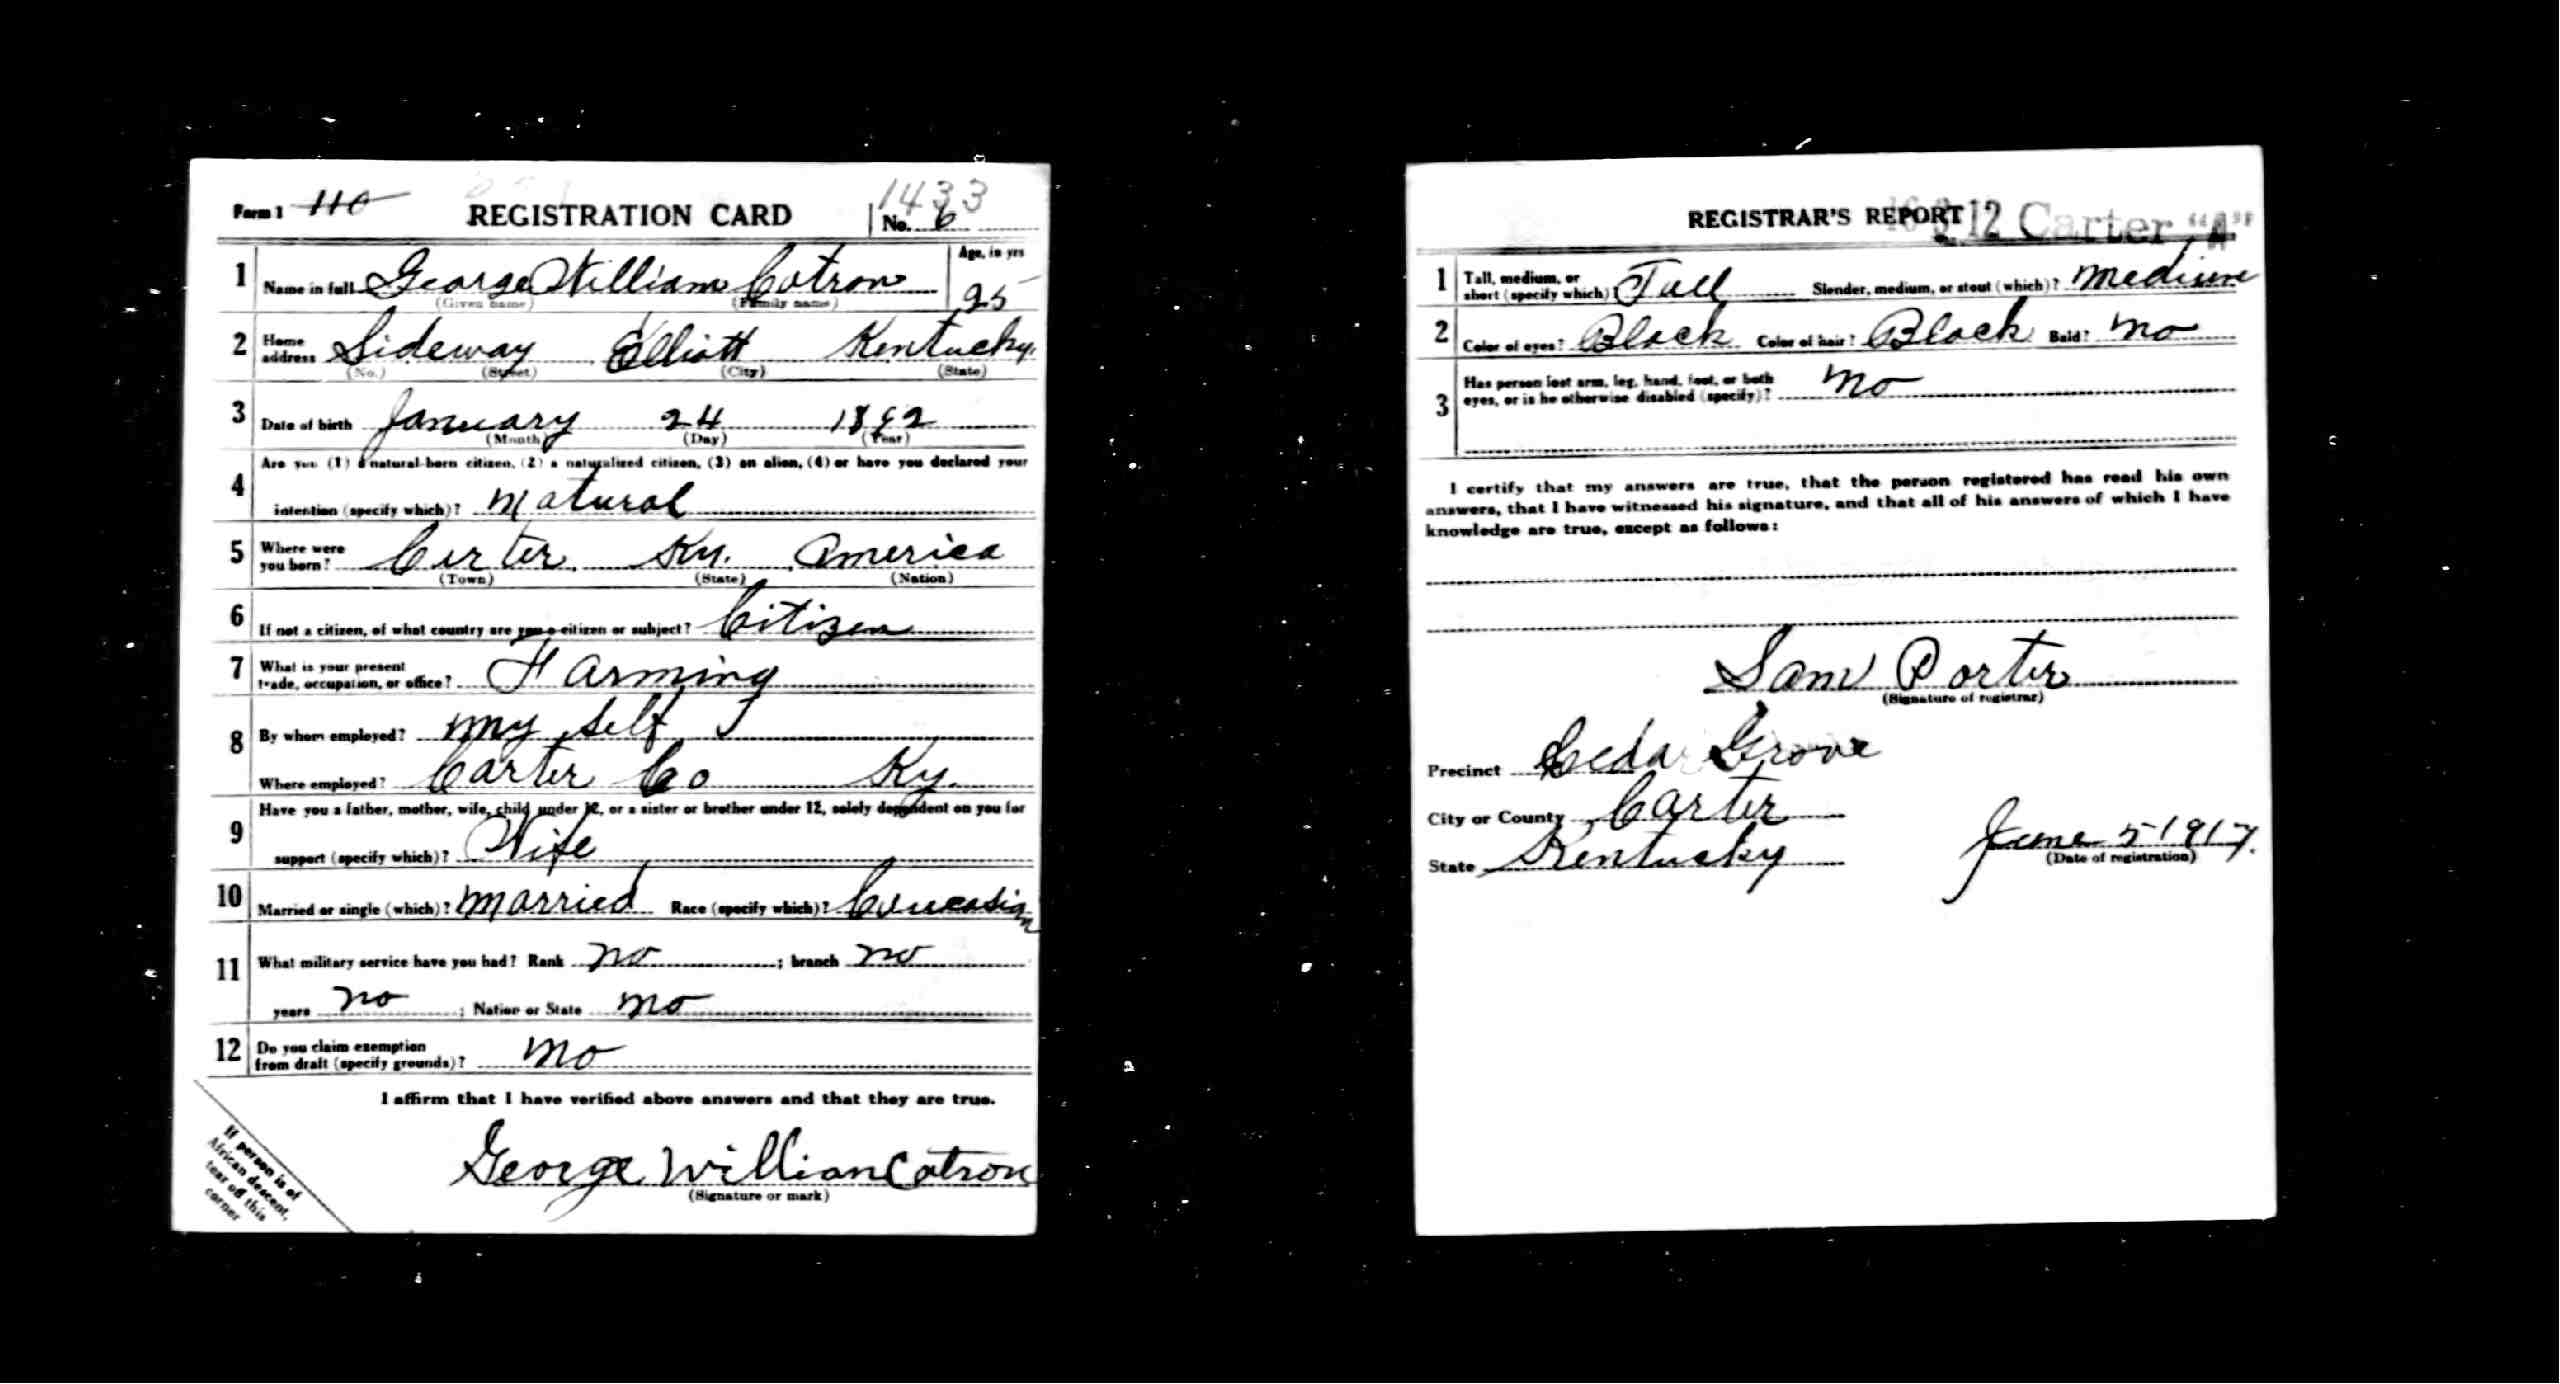 Form 1 110 REGISTRATION CARD 1433
No. 6
1 Name in full George William Cotron Age, in yrs
(Given name) (Family name) 25
2 Home address Sideway Elliott Kentucky.
(No.) (Street) (City) (State)
3 Date of birth January 24 1892
(Month) (Day) (Year)
Are you (1) a natural-born citizen, (2) a naturalized citizen, (3) an alien, (4) or have you declared your
4 intention (specify which)? Natural
5 Where were you born? Carter Ky. America
(Town) (State) (Nation)
6 If not a citizen, of what country are you a citizen or subject? Citizen
7 What is your present trade, occupation, or office? Farming
8 By whom employed? my self
Where employed? Carter Co Ky.
Have you a father, mother, wife, child under 12, or a sister or brother under 12, solely dependent on you for
9 support (specify which)? Wife
10 Married or single (which)? married Race (specify which)? Coucasian
11 What military service have you had? Rank no ; branch no
years no ; Nation or State no
12 Do you claim exemption from draft (specify grounds)? no
I affirm that I have verified above answers and that they are true.
George Willian Cotron
(Signature or mark)
If person is of
African descent,
tear off this
corner
REGISTRAR'S REPORT 12 Carter "A"
1 Tall, medium, or short (specify which)? Tall Slender, medium, or stout (which)? Medium
2 Color of eyes? Black Color of hair? Black Bald? no
3 Has person lost arm, leg, hand, foot, or both
eyes, or is he otherwise disabled (specify)? no
I certify that my answers are true, that the person registered has read his own
answers, that I have witnessed his signature, and that all of his answers of which I have
knowledge are true, except as follows:
Sam Porter
(Signature of registrar)
Precinct Ceda Grove
City or County Carter
State Kentucky June 5 1917.
(Date of registration)